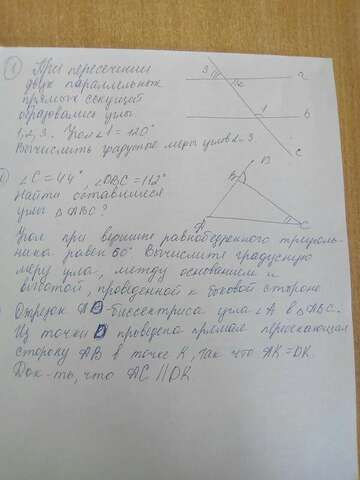 1 При пересечении
двух параллельных
прямых секущей
образовались углы
1, 2, 3. Угол ∠1 = 120°
Вычислить градусные меры углов 2, 3
3
2
a
1
b
c
∠C = 44°, ∠DBC = 112°
Найти оставшиеся
углы △ABC?
D
B
A
C
Угол при вершине равнобедренного треуголь-
ника равен 50° Вычислите градусную
меру угла, между основанием и
высотой, проведенной к боковой стороне
Отрезок AD-биссектриса угла ∠A в △ABC.
Из точки D проведена прямая пересекающая
сторону AB в точке K, так что AK = DK.
Док-ть, что AC || DK